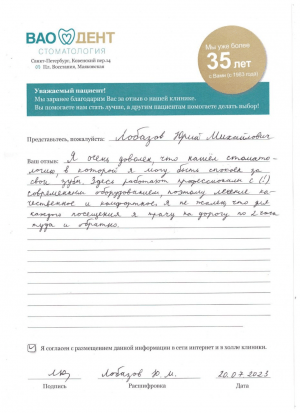 ВАО ДЕНТ
СТОМАТОЛОГИЯ
Санкт-Петербург, Ковенский пер.14
Пл. Восстания, Маяковская
Мы уже более
35 лет
с Вами (с 1983 года)
Уважаемый пациент!
Мы заранее благодарим Вас за отзыв о нашей клинике.
Вы помогаете нам стать лучше, а другим пациентам помогаете делать выбор!
Представьтесь, пожалуйста: Лобазов Юрий Михайлович
Ваш отзыв: Я очень доволен, что нашел стомато-
логию в которой я могу быть спокоен за
свои зубы. Здесь работают профессионалы с (!)
современным оборудованием, поэтому лечение ка-
чественное и комфортное, я не жалею, что для
каждого посещения я трачу на дорогу по 2 часа
туда и обратно.
Я согласен с размещением данной информации в сети интернет и в холле клиники.
Лобазов Ю.М. 20.07.2023
Подпись Расшифровка Дата